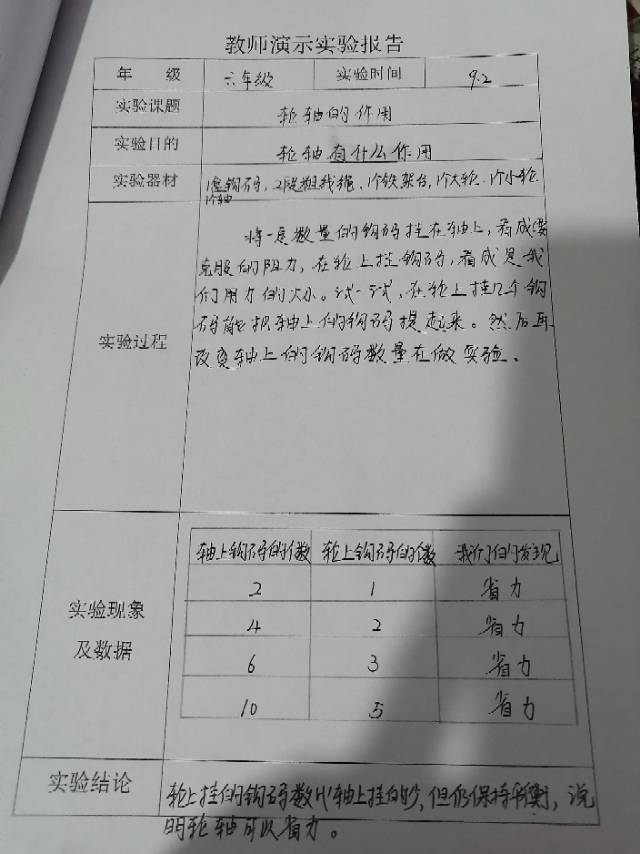 教师演示实验报告
年 级 六年级 实验时间 9.2
实验课题 轮轴的作用
实验目的 轮轴有什么作用
实验器材 1盒钩码、2段粗线绳、1个铁架台、1个大轮、1个小轮
1个轴
将一定数量的钩码挂在轴上,看成需
克服的阻力,在轮上挂钩码,看成是我
们用力的大小。试一试,在轮上挂几个钩
码能把轴上的钩码提起来。然后再
实验过程
改变轴上的钩码数量在做实验。
轴上钩码的个数 轮上钩码的个数 我们的发现
2 1 省力
4 2 省力
6 3 省力
10 5 省力
实验现象
及数据
实验结论
轮上挂的钩码数比轴上挂的少,但仍保持平衡,说
明轮轴可以省力。